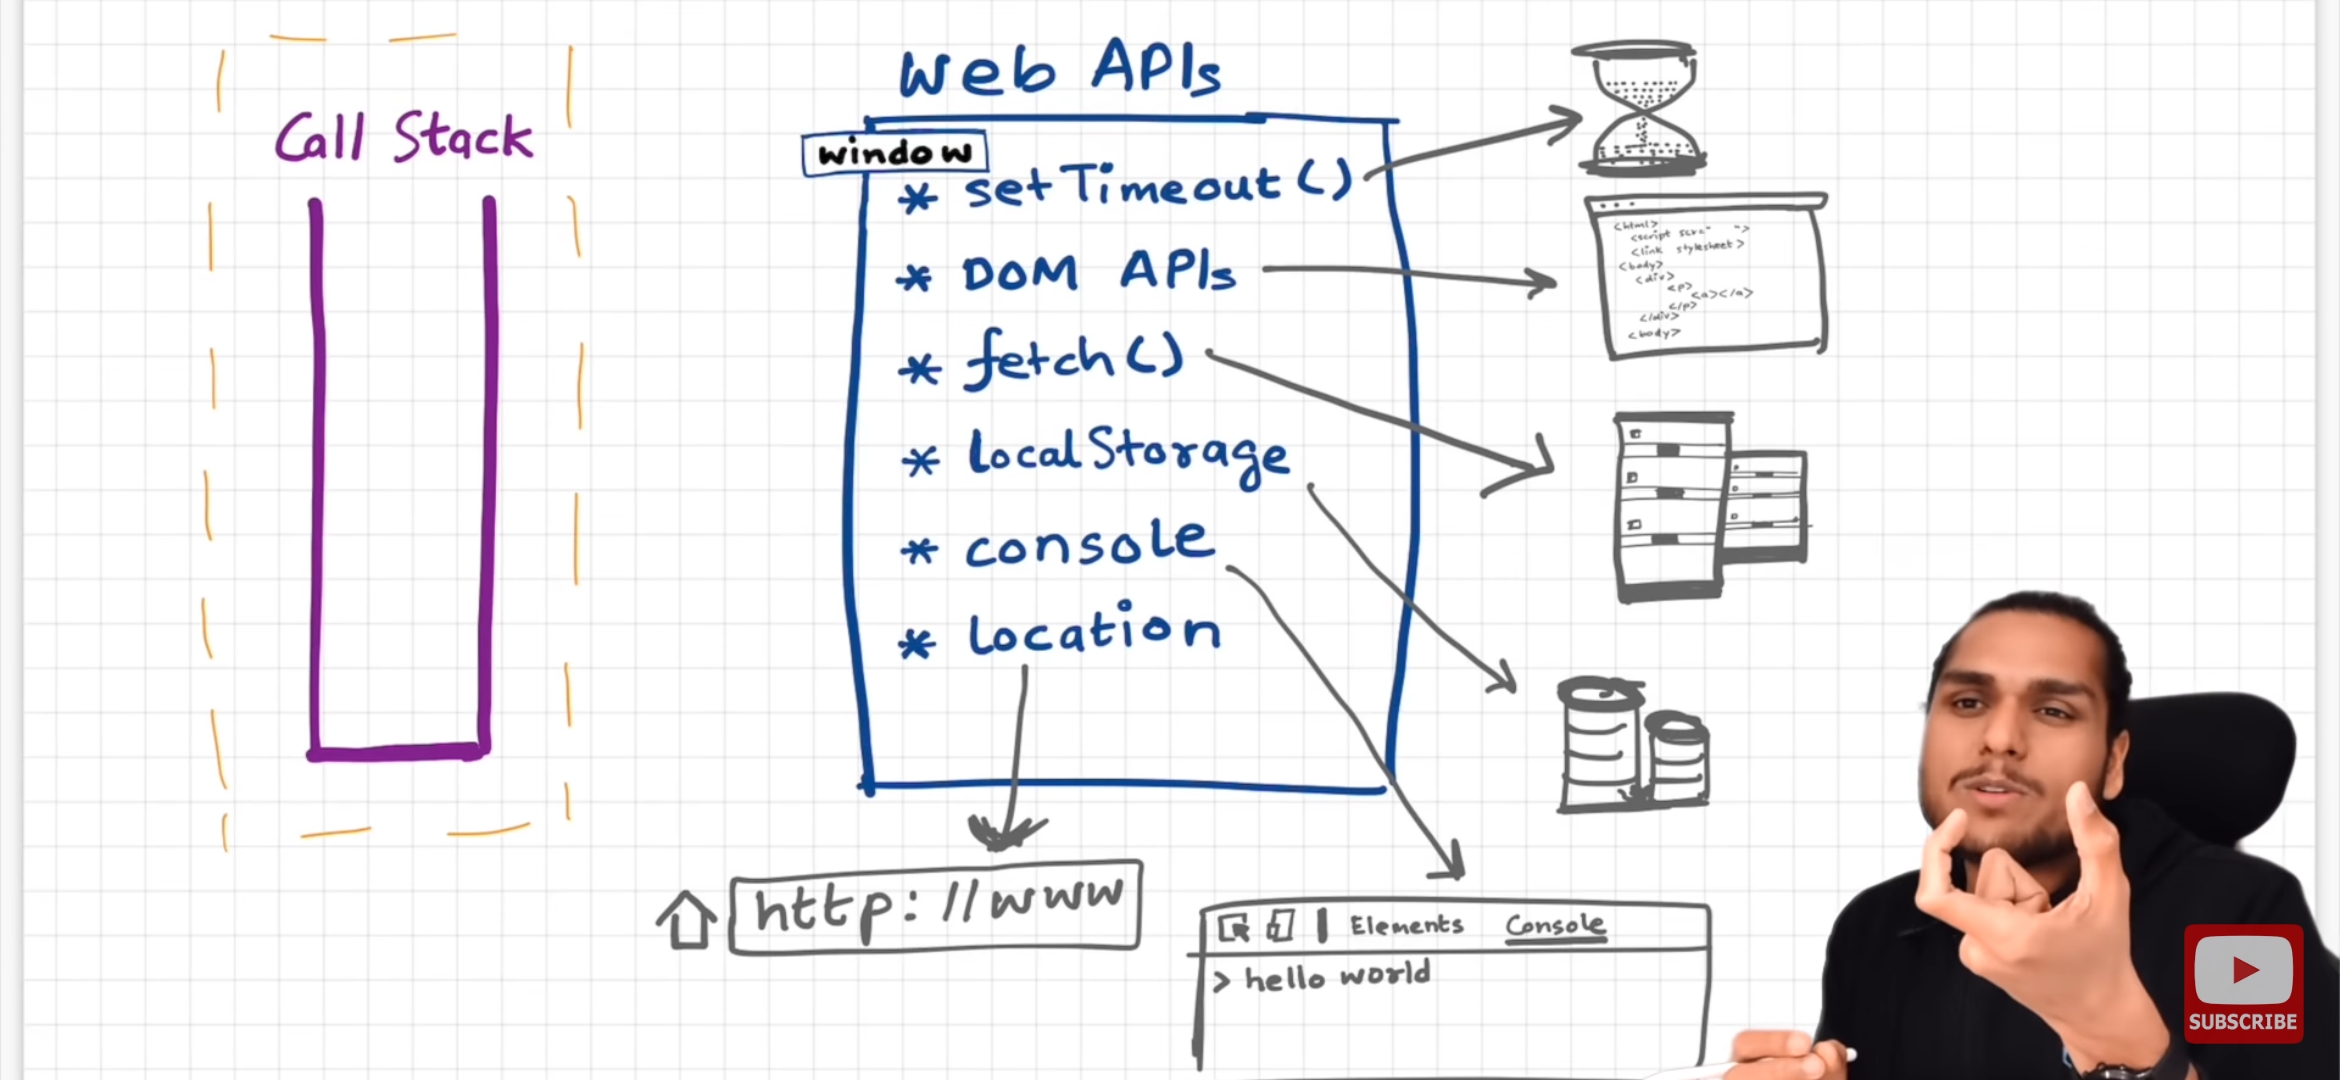 Web APIs
Call Stack
window
* setTimeout()
* DOM APIs
* fetch()
* localStorage
* console
* location
<html>
<link stylesheet>
<body>
<div>
<p>
<a></a>
</p>
</div>
<body>
http://www
Elements Console
> hello world
SUBSCRIBE